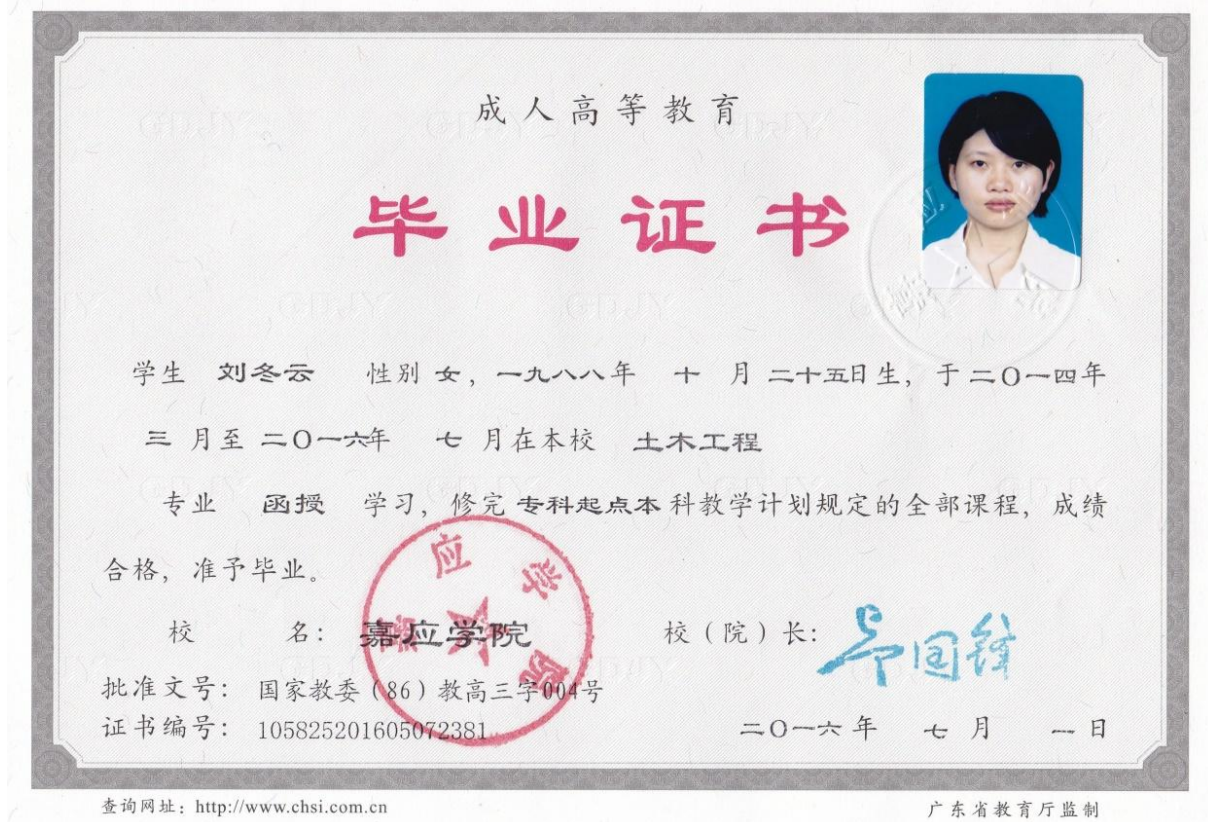 成人高等教育
毕业证书
学生 刘冬云 性别 女，一九八八年 十 月 二十五日生，于二〇一四年
三 月至 二〇一六年 七 月在本校 土木工程
专业 函授 学习，修完 专科起点本 科教学计划规定的全部课程，成绩
合格，准予毕业。
校 名： 嘉应学院 校（院）长：
批准文号： 国家教委（86）教高三字004号
证书编号： 105825201605072381 二〇一六年 七月 一日
查询网址：http://www.chsi.com.cn 广东省教育厅监制
嘉应学院